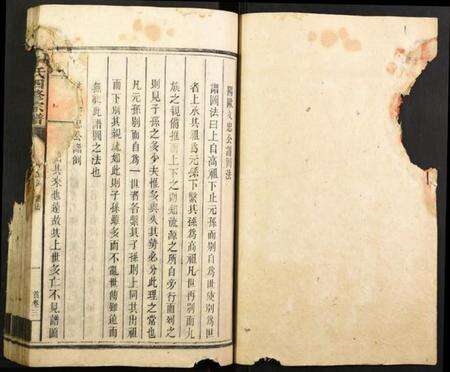 歐文忠公譜圖法
譜圖法曰上自高祖下止元孫而别自為世使别為世
者上承其祖為元孫下繫其孫為高祖凡世再别而九
族之親備推而上下之則知源流之所自旁行而列之
則見子孫之多少夫惟多與久其勢必分此物之常也
凡元孫别而自為一世者各繫其子孫則上同其出祖
而下别其親疏如此則子孫雖多而不亂世傳雖遠而
無窮此譜圖之法也
公譜例
譜其來也遠故其上世多亡不見譜圖
氏四修宗譜
首卷